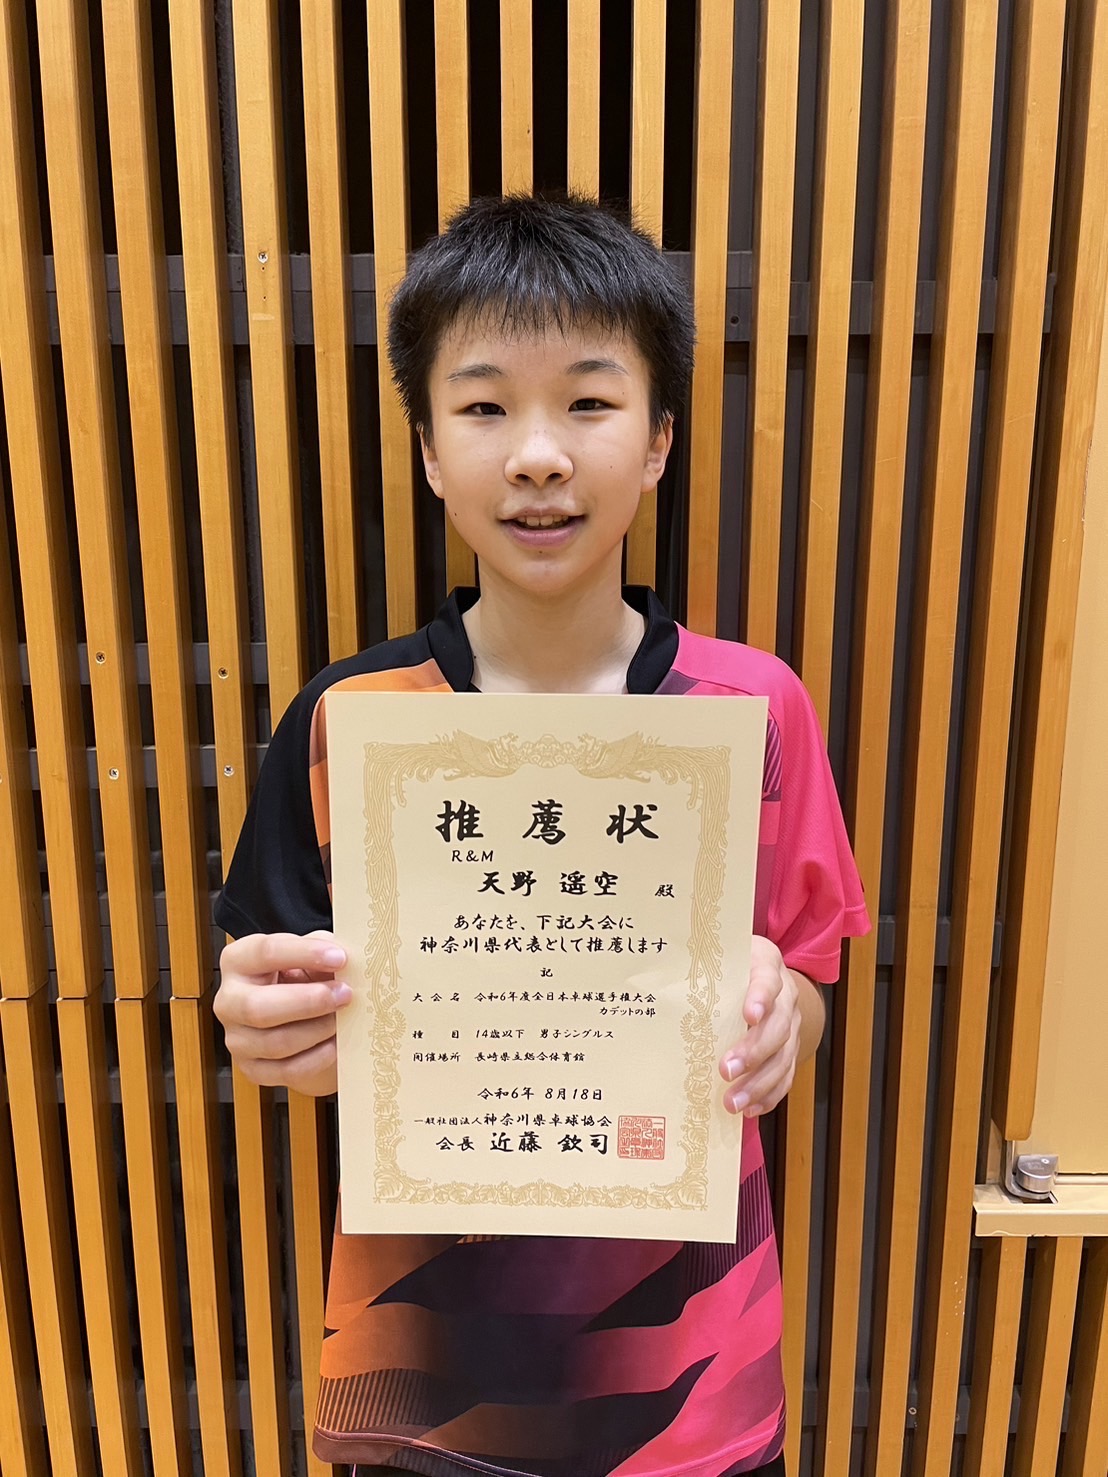 推薦状
R&M
天野 遥空 殿
あなたを、下記大会に
神奈川県代表として推薦します
記
大会名 令和6年度全日本卓球選手権大会
カデットの部
種目 14歳以下 男子シングルス
開催場所 長崎県立総合体育館
令和6年 8月18日
一般社団法人神奈川県卓球協会
会長 近藤 欽司